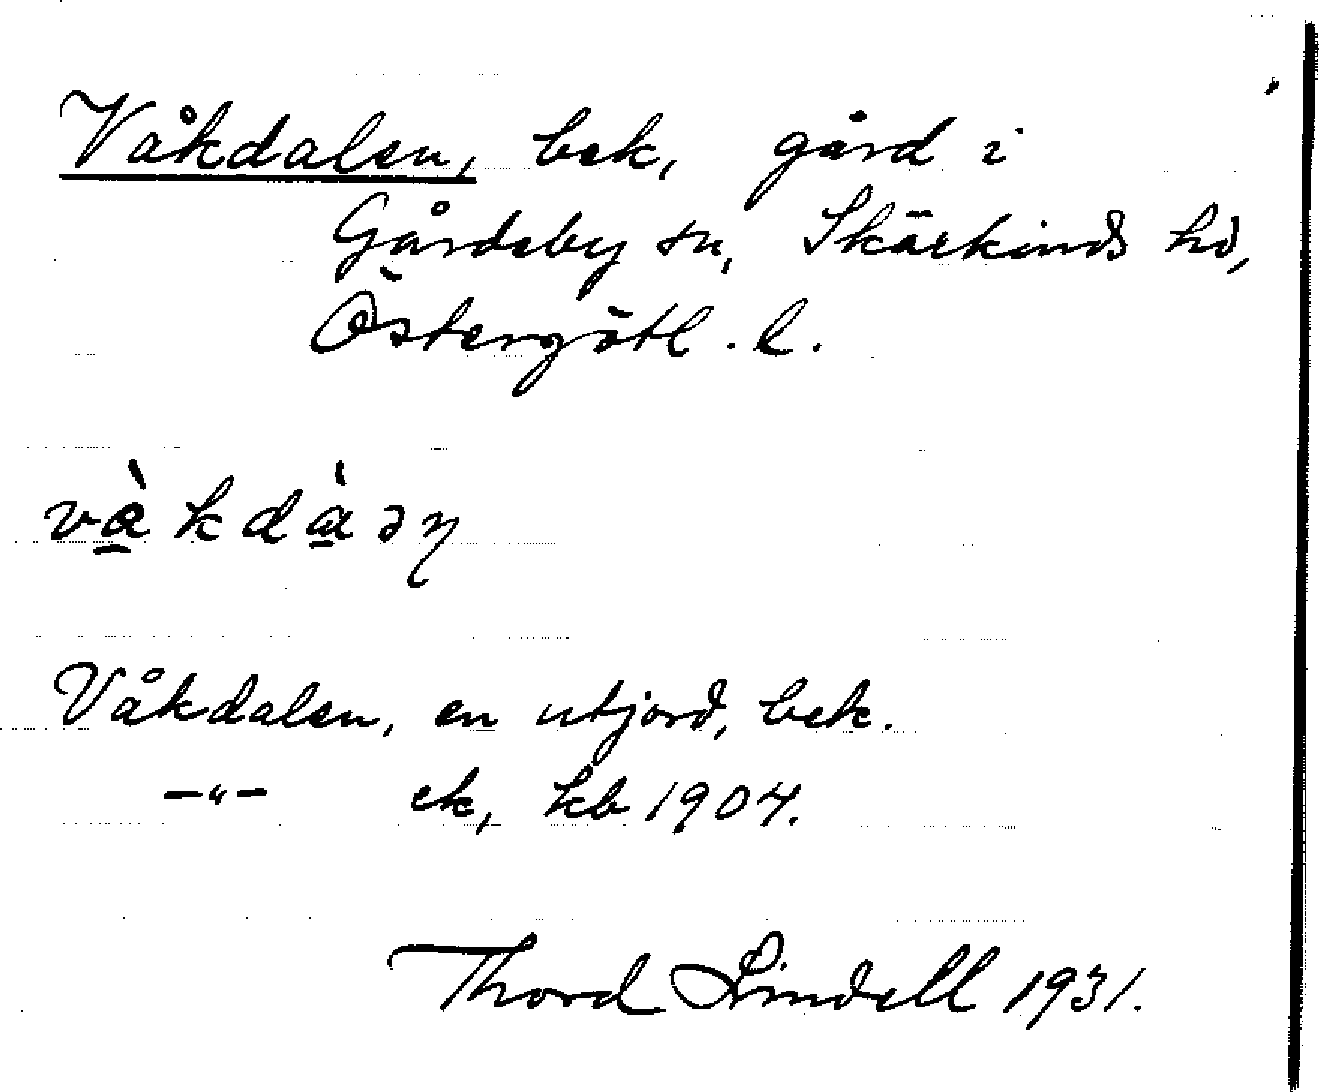 Våkdalen, bek, gård i
Gårdeby sn, Skärkinds hd,
Östergötl. l.
và̱kdà̱ən
Våkdalen, en utjord, bek.
–"– ek, kb 1904.
Thord Lindell 1931.